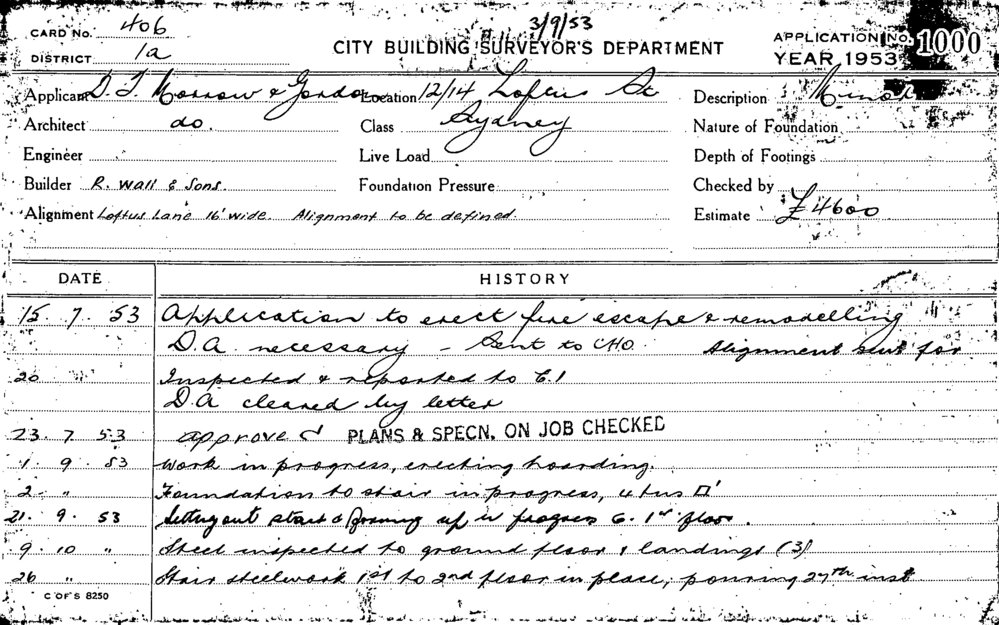 3/9/53
CARD No. 406
CITY BUILDING SURVEYOR'S DEPARTMENT
APPLICATION No. 1000
DISTRICT 1a
YEAR 1953
Applicant D. T. Morrow & Gordon Location 12/14 Loftus St Description Minor
Architect do. Class Sydney Nature of Foundation
Engineer Live Load Depth of Footings
Builder R. Wall & Sons. Foundation Pressure Checked by
Alignment Loftus Lane 16' wide. Alignment to be defined. Estimate £4600
DATE HISTORY
15 . 7 . 53 Application to erect fire escape & remodelling
D.A. necessary - Sent to CHO. Alignment sent for
20 " Inspected & reported to C.I
D.A cleared by letter
23 . 7 . 53 approved PLANS & SPECN. ON JOB CHECKED
1 . 9 . 53 Work in progress, erecting hoarding.
2 " Foundation to stair in progress,
21 . 9 . 53 Setting out stairs & forming up in progress G. 1st floor.
9 . 10 " Steel inspected to ground floor & landings (3)
26 " Stair steelwork 1st to 2nd floor in place, pouring 27th inst
C OF S 8250